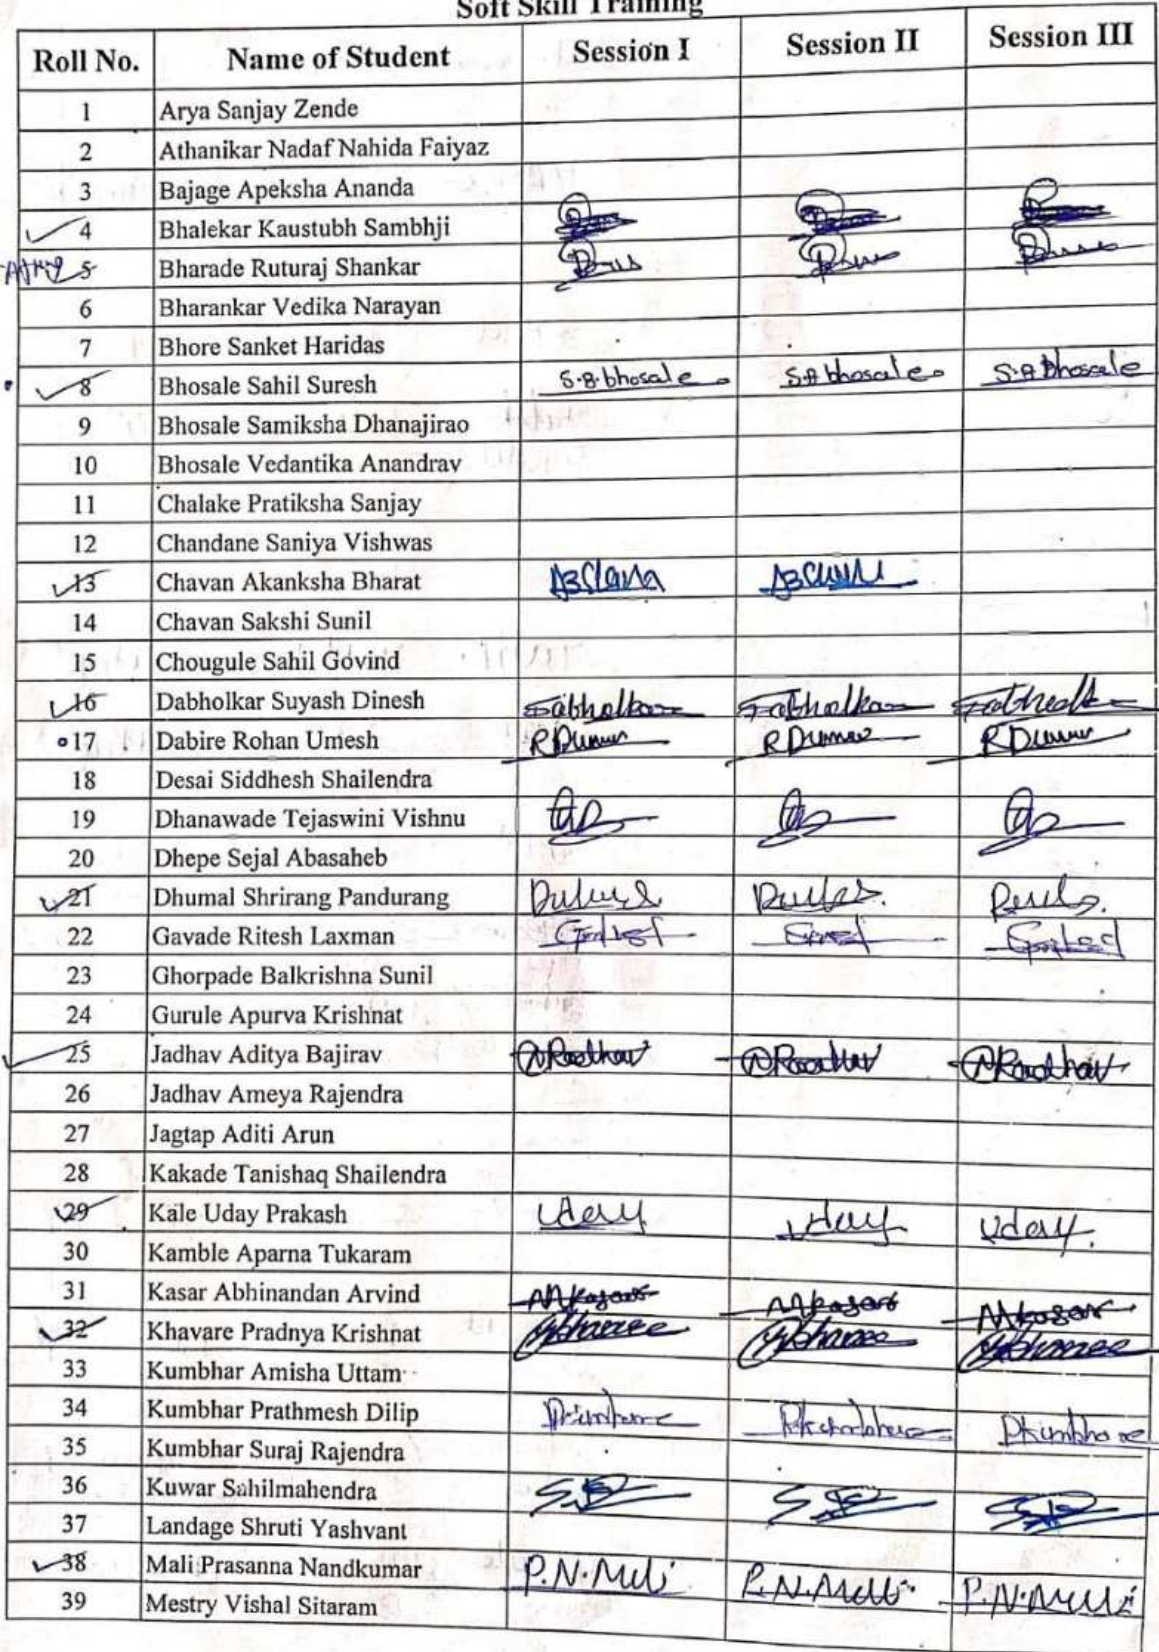 Soft Skill Training
Roll No. Name of Student Session I Session II Session III
1 Arya Sanjay Zende
2 Athanikar Nadaf Nahida Faiyaz
3 Bajage Apeksha Ananda
4 Bhalekar Kaustubh Sambhji
5 Bharade Ruturaj Shankar
6 Bharankar Vedika Narayan
7 Bhore Sanket Haridas
8 Bhosale Sahil Suresh S.B.bhosale S.B bhosale S.B bhosale
9 Bhosale Samiksha Dhanajirao
10 Bhosale Vedantika Anandrav
11 Chalake Pratiksha Sanjay
12 Chandane Saniya Vishwas
13 Chavan Akanksha Bharat
14 Chavan Sakshi Sunil
15 Chougule Sahil Govind
16 Dabholkar Suyash Dinesh
17 Dabire Rohan Umesh
18 Desai Siddhesh Shailendra
19 Dhanawade Tejaswini Vishnu
20 Dhepe Sejal Abasaheb
21 Dhumal Shrirang Pandurang
22 Gavade Ritesh Laxman
23 Ghorpade Balkrishna Sunil
24 Gurule Apurva Krishnat
25 Jadhav Aditya Bajirav
26 Jadhav Ameya Rajendra
27 Jagtap Aditi Arun
28 Kakade Tanishaq Shailendra
29 Kale Uday Prakash Uday Uday Uday.
30 Kamble Aparna Tukaram
31 Kasar Abhinandan Arvind
32 Khavare Pradnya Krishnat
33 Kumbhar Amisha Uttam
34 Kumbhar Prathmesh Dilip
35 Kumbhar Suraj Rajendra
36 Kuwar Sahilmahendra
37 Landage Shruti Yashvant
38 Mali Prasanna Nandkumar P.N.Mali P.N.Mali P.N.Mali
39 Mestry Vishal Sitaram